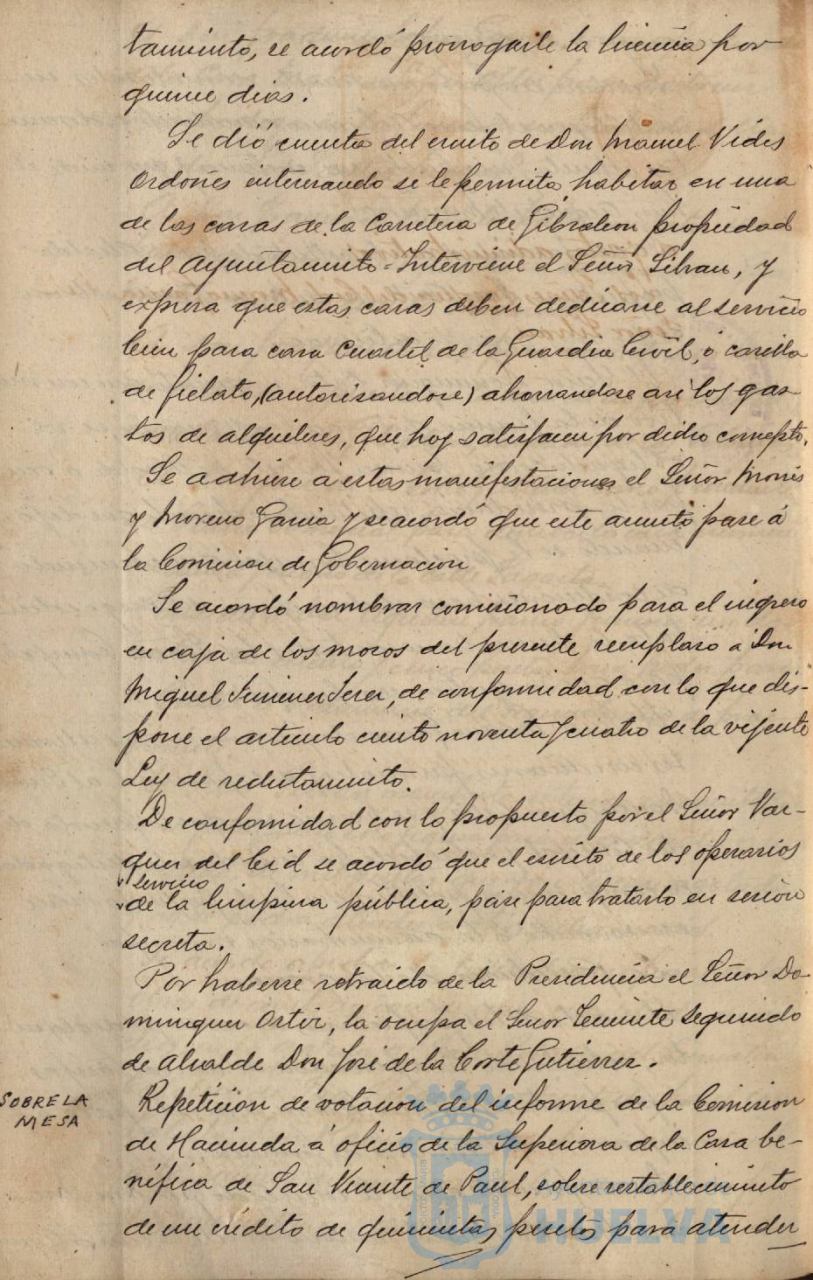 tamiento, se acordó prorrogarle la licencia por
quince dias.
Se dió cuenta del escrito de Don Manuel Vides
Ordoñes interesando se le permita habitar en una
de las casas de la Carretera de Gibraleon propiedad
del Ayuntamiento = Interviene el Señor Silvan, y
expresa que estas casas deben dedicarse al servicio
bien para casa Cuartel de la Guardia Civil, ó casilla
de fielato, (autorisandose) ahorrandose asi los gas-
tos de alquileres, que hoy satisfacen por dicho concepto.
Se adhiere á estas manifestaciones el Señor Monis
y Moreno Garcia y se acordó que este asunto pase á
la Comision de Gobernacion
Se acordó nombrar comisionado para el ingreso
en caja de los mosos del presente remplaso á Don
Miguel Jimenez, de conformidad con lo que dis-
pone el articulo ciento noventa y cuatro de la vijente
Ley de reclutamiento.
De conformidad con lo propuesto por el Señor Vaz-
quez del Cid se acordó que el escrito de los operarios
servicio
de la limpieza pública, pase para tratarlo en sesion
secreta.
Por haberse retraido de la Presidencia el Señor Do-
minguez Ortiz, la ocupa el Señor Teniente Segundo
de Alcalde Don José de la Corte Gutierrez.
SOBRE LA
MESA
Repeticion de votacion del informe de la Comision
de Hacienda á oficio de la Superiora de la Casa be-
néfica de San Vicente de Paul, sobre restablecimiento
de un crédito de quinientas pesetas para atender
HUELVA